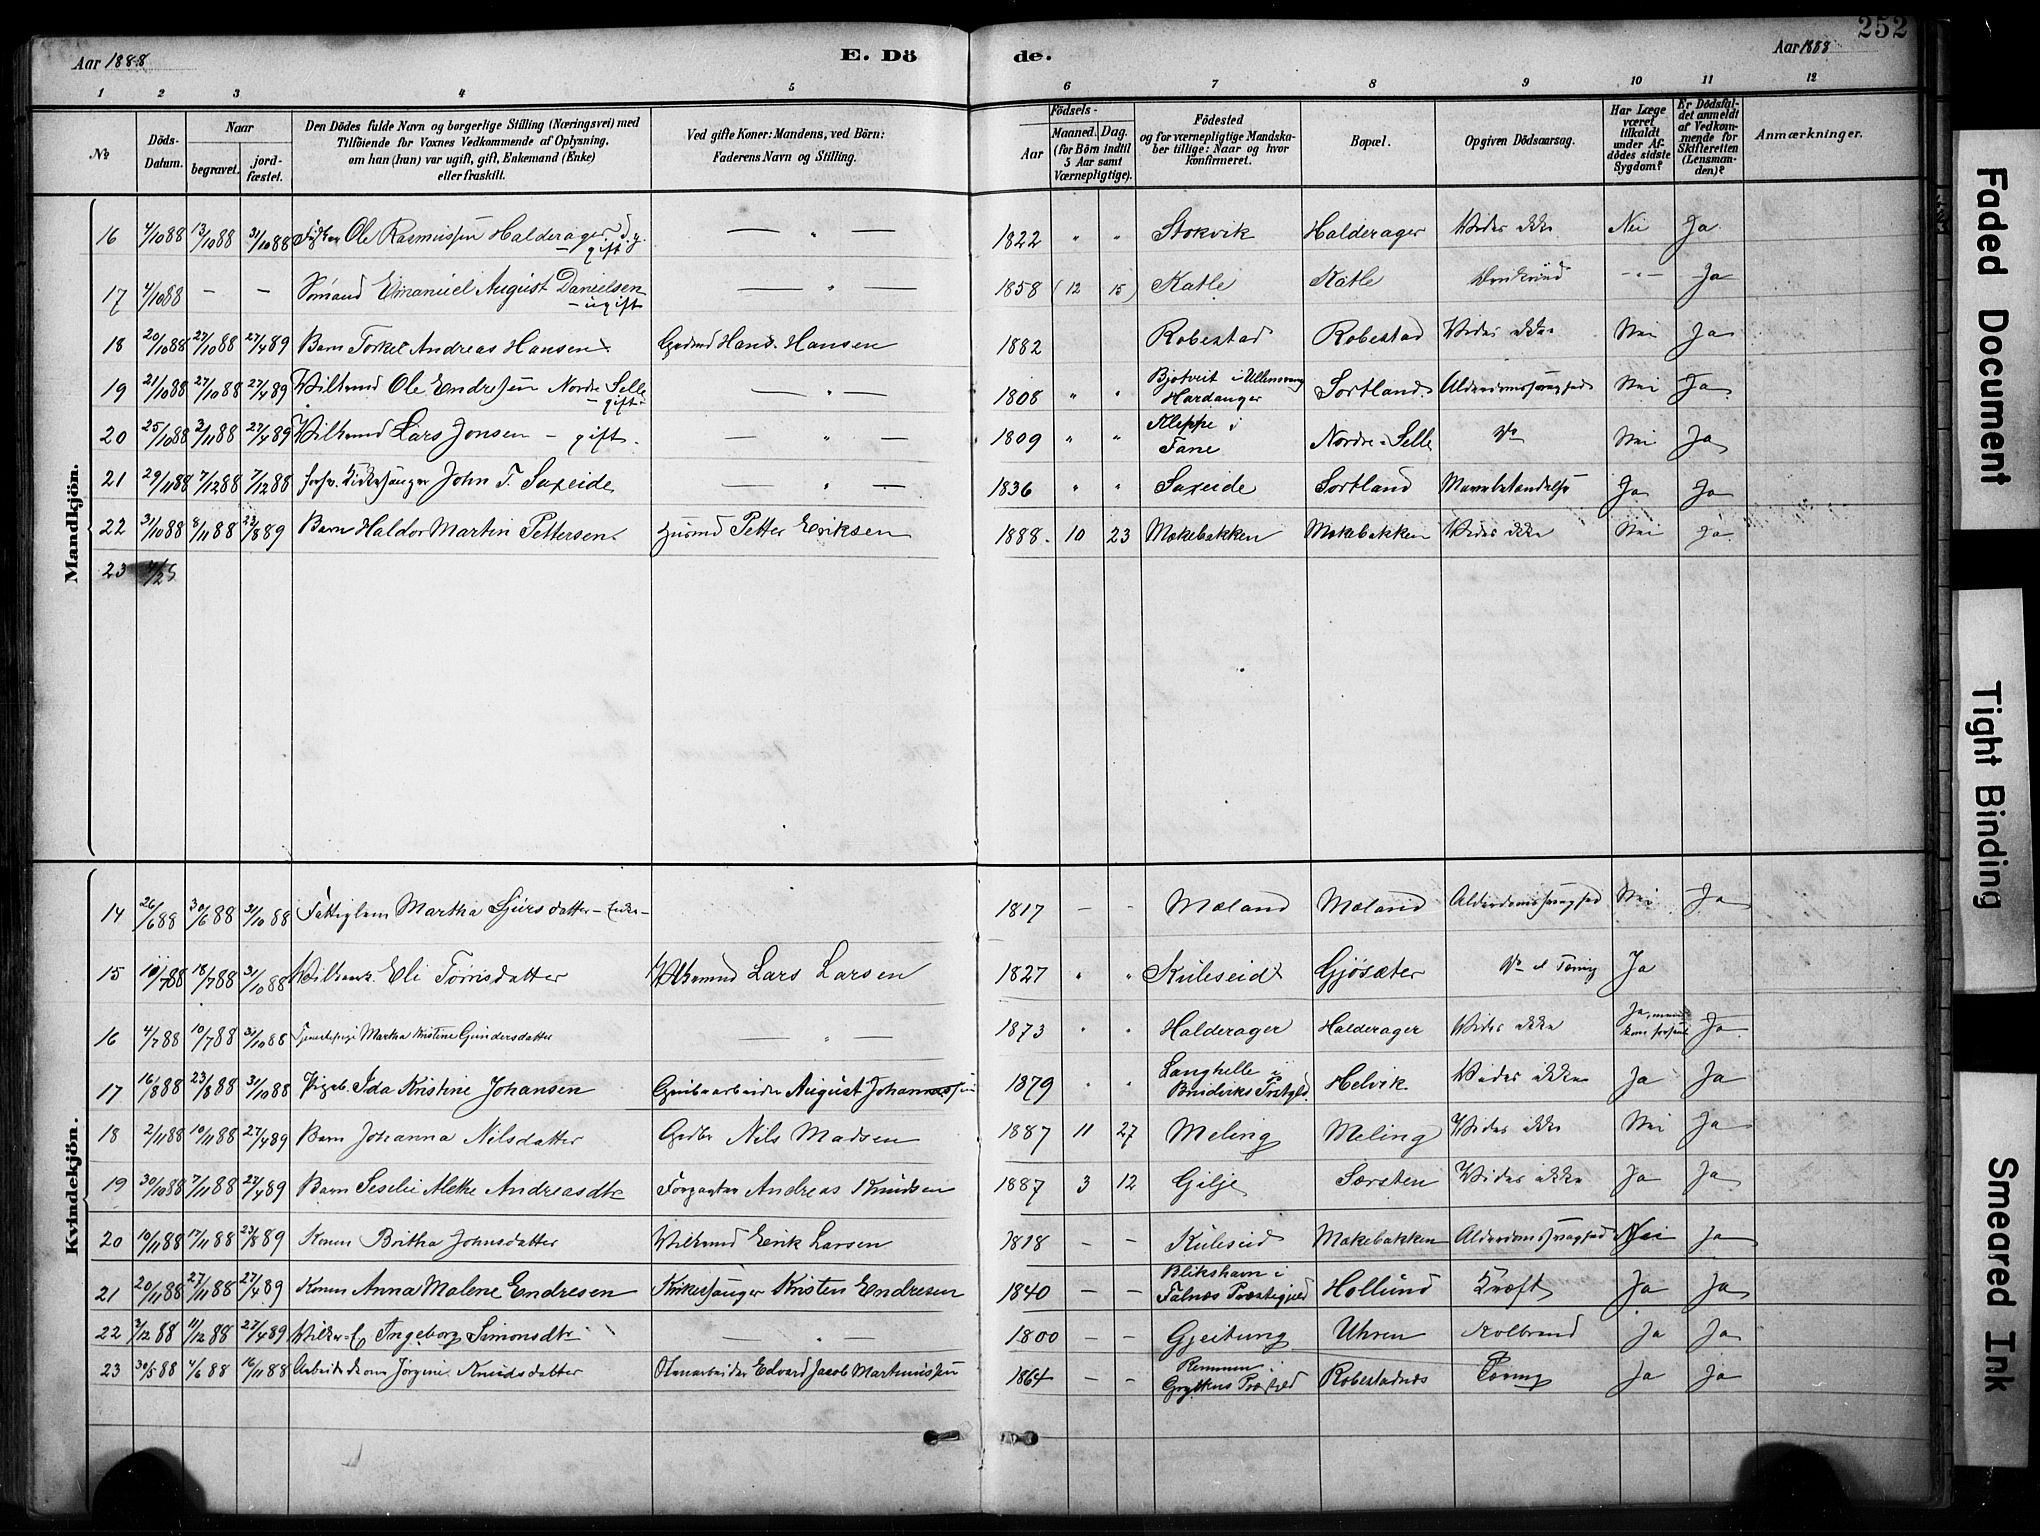 252
Aar 1888
E. Dö
de.
Aar 1888
1 2 3 4 5 6 7 8 9 10 11 12
No
Döds-Datum.
Naar
begravet.
jordfæstet.
Den Dödes fulde Navn og borgerlige Stilling (Næringsvei) med
Tilföiende for Voxnes Vedkommende af Oplysning,
om han (hun) var ugift, gift, Enkemand (Enke)
eller fraskilt.
Ved gifte Koner: Mandens, ved Börn:
Faderens Navn og Stilling.
Födsels-
Aar
Maaned. Dag.
(for Börn indtil
5 Aar samt
Værnepligtige).
Födested
og for værnepligtige Mandskaber tillige: Naar og hvor
konfirmeret.
Bopæl.
Opgiven Dödsaarsag.
Har Læge
været
tilkaldt
under Afdödes sidste
Sygdom?
Er Dödsfaldet anmeldt
af Vedkommende for
Skifteretten
(Lensmanden)?
Anmærkninger.
Mandkjön.
16 4/10 88 13/10 88 31/10 88 Ole Rasmussen Halderager gift — " — 1822 " " Stokvik Halderager Vides ikke Nei Ja
17 4/10 88 — — Sømand Emanuel August Danielsen — ugift — " 1858 (12 15) Katle Katle Ja
18 20/10 88 27/10 88 27/4 89 Barn Torkel Andreas Hansen Gaardmd Hans Hansen 1882 Robestad Robestad Vides ikke Nei Ja
19 21/10 88 27/10 88 27/4 89 Vilkmd Ole Endresen Nordre Selle — gift — — " — 1808 " " Bjotveit i Ullensvang Hardanger Sortland Alderdomssvaghed Nei Ja
20 25/10 88 2/11 88 27/4 89 Vilkmd Lars Jonsen — gift — " — 1809 " " Kleppe i Fane Nordre Selle Do Nei Ja
21 29/11 88 7/12 88 7/12 88 forhv. Kirkesanger John T. Saxeide — " — 1836 " " Saxeide Sortland Mavebetændelse Ja Ja
22 31/10 88 8/11 88 23/8 89 Barn Haldor Martin Pettersen Husmd Petter Eriksen 1888 10 23 Mækebakken Mækebakken Vides ikke Nei Ja
23
Kvindekjön.
14 26/6 88 30/6 88 31/10 88 Fattiglem Martha Sjursdatter — Enke — 1817 — — Mæland Mæland Alderdomssvaghed Nei Ja
15 10/7 88 18/7 88 31/10 88 Eli Tørrisdatter Vilkmd Lars Larsen 1827 " " Kuleseid Gjøsæter Do & Tæring Ja
16 4/7 88 10/7 88 31/10 88 Tjenestepige Martha Kristine Gundersdatter — " — 1873 " " Halderager Halderager Vides ikke Ja, men kom forsent Ja
17 16/8 88 23/8 88 31/10 88 Pigeb. Ida Kristine Johansen Grubearbeider August Johannessen 1879 " " Langhelle i Helvik Vides ikke Ja Ja
18 2/11 88 10/11 88 27/4 89 Barn Johanna Nilsdatter Gaardbr Nils Madsen 1887 11 27 Meling Meling Vides ikke Nei Ja
19 30/10 88 7/11 88 27/4 89 Barn Seselie Alethe Andreasdtr Forpagter Andreas Knudsen 1887 3 12 Gilje Sørsten Vides ikke Ja Ja
20 10/11 88 17/11 88 23/8 89 Konen Britha Johnsdatter Vilkmd Erik Larsen 1818 — — Kuleseid Mækebakken Alderdomssvaghed Nei Ja
21 20/11 88 27/11 88 27/4 89 Konen Anna Malene Endresen Kirkesanger Kristen Endresen 1840 — — Blikshavn i Falnæs Præstegjeld Hollund Kræft Ja Ja
22 3/12 88 11/12 88 27/4 89 Ingeborg Simonsdtr — " — 1800 — — Gjeitung Uhren Kolbrand Ja Ja
23 30/5 88 4/6 88 16/11 88 Jørgine Knudsdatter Edvard Jacob Martinussen 1864 — — Remmen i Robestadnæs Tæring Ja Ja
Faded Document
Tight Binding
Smeared Ink